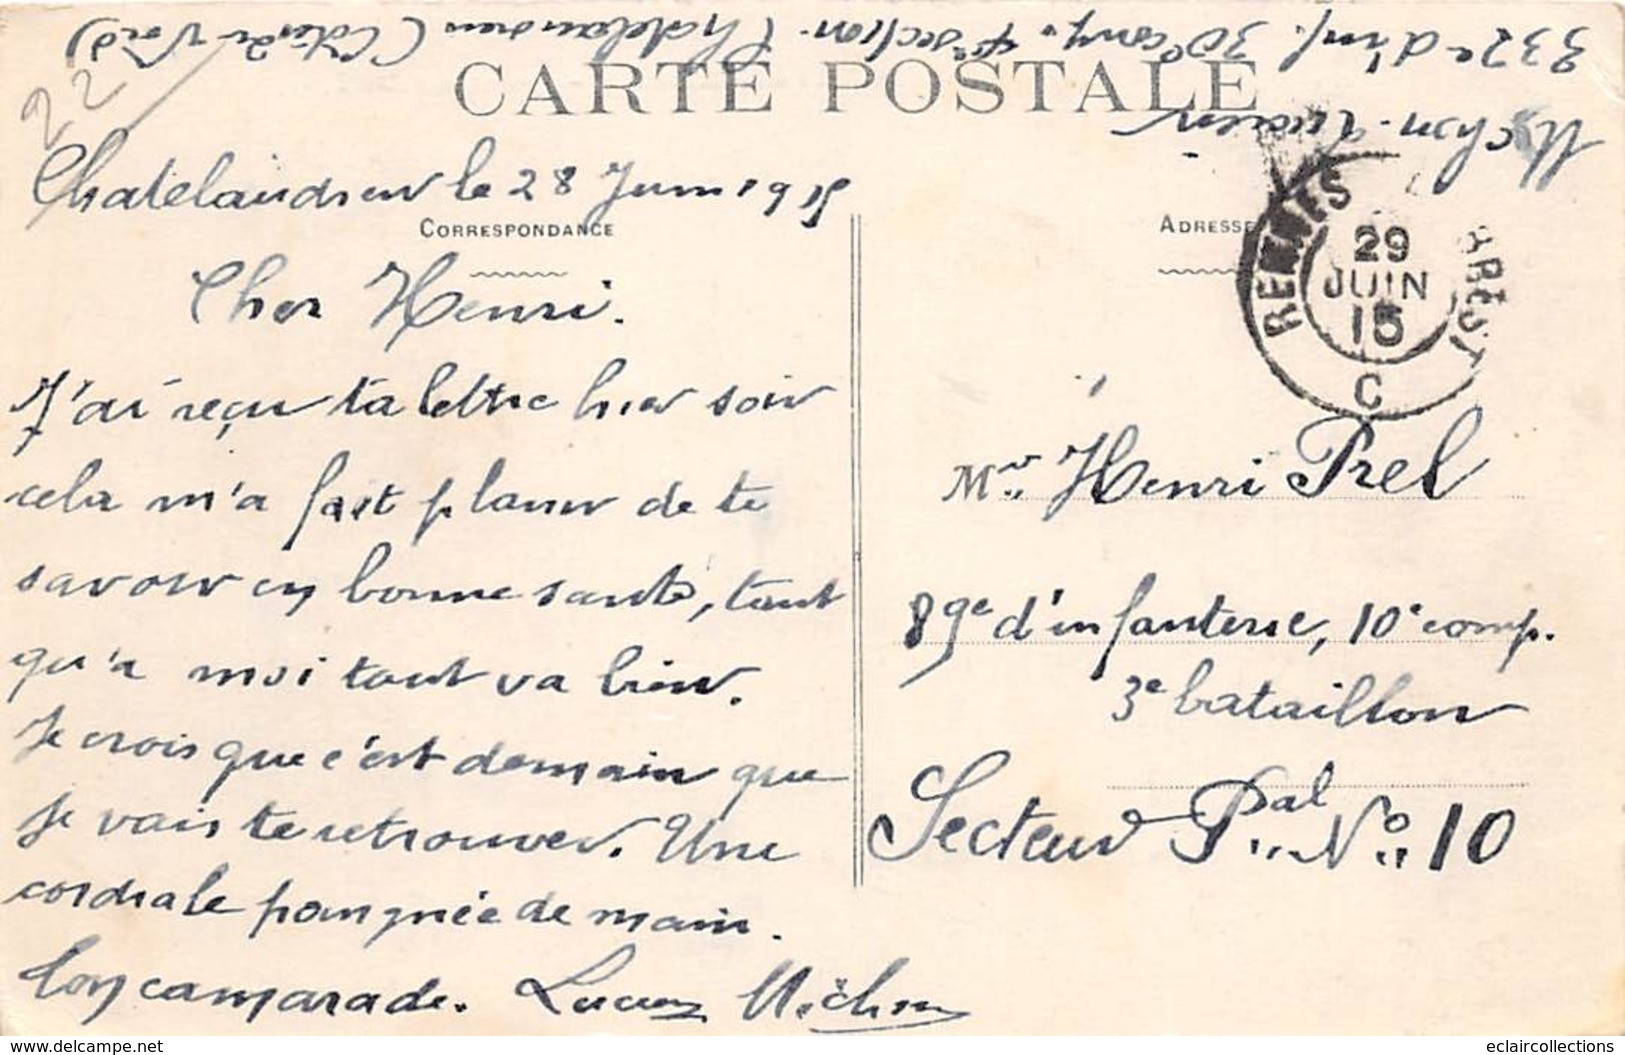 Michon Lucien
332e d'inf. 30e comp. 4e section. Chatelaudren (Côtes du Nord)
22
CARTE POSTALE
Chatelaudren le 28 Juin 1915
CORRESPONDANCE
Cher Henri.
J'ai reçu ta lettre hier soir
cela m'a fait plaisir de te
savoir en bonne santé, tant
qu'a moi tout va bien.
Je crois que c'est demain que
je vais te retrouver. Une
cordiale poingnée de main.
Ton camarade. Lucien Michon
ADRESSE
RENNES
BREST
29
JUIN
15
C
Mr Henri Prel
89e d'infanterie, 10e comp.
3e bataillon
Secteur Pal No 10
https://www.delcampe.net
eclaircollections